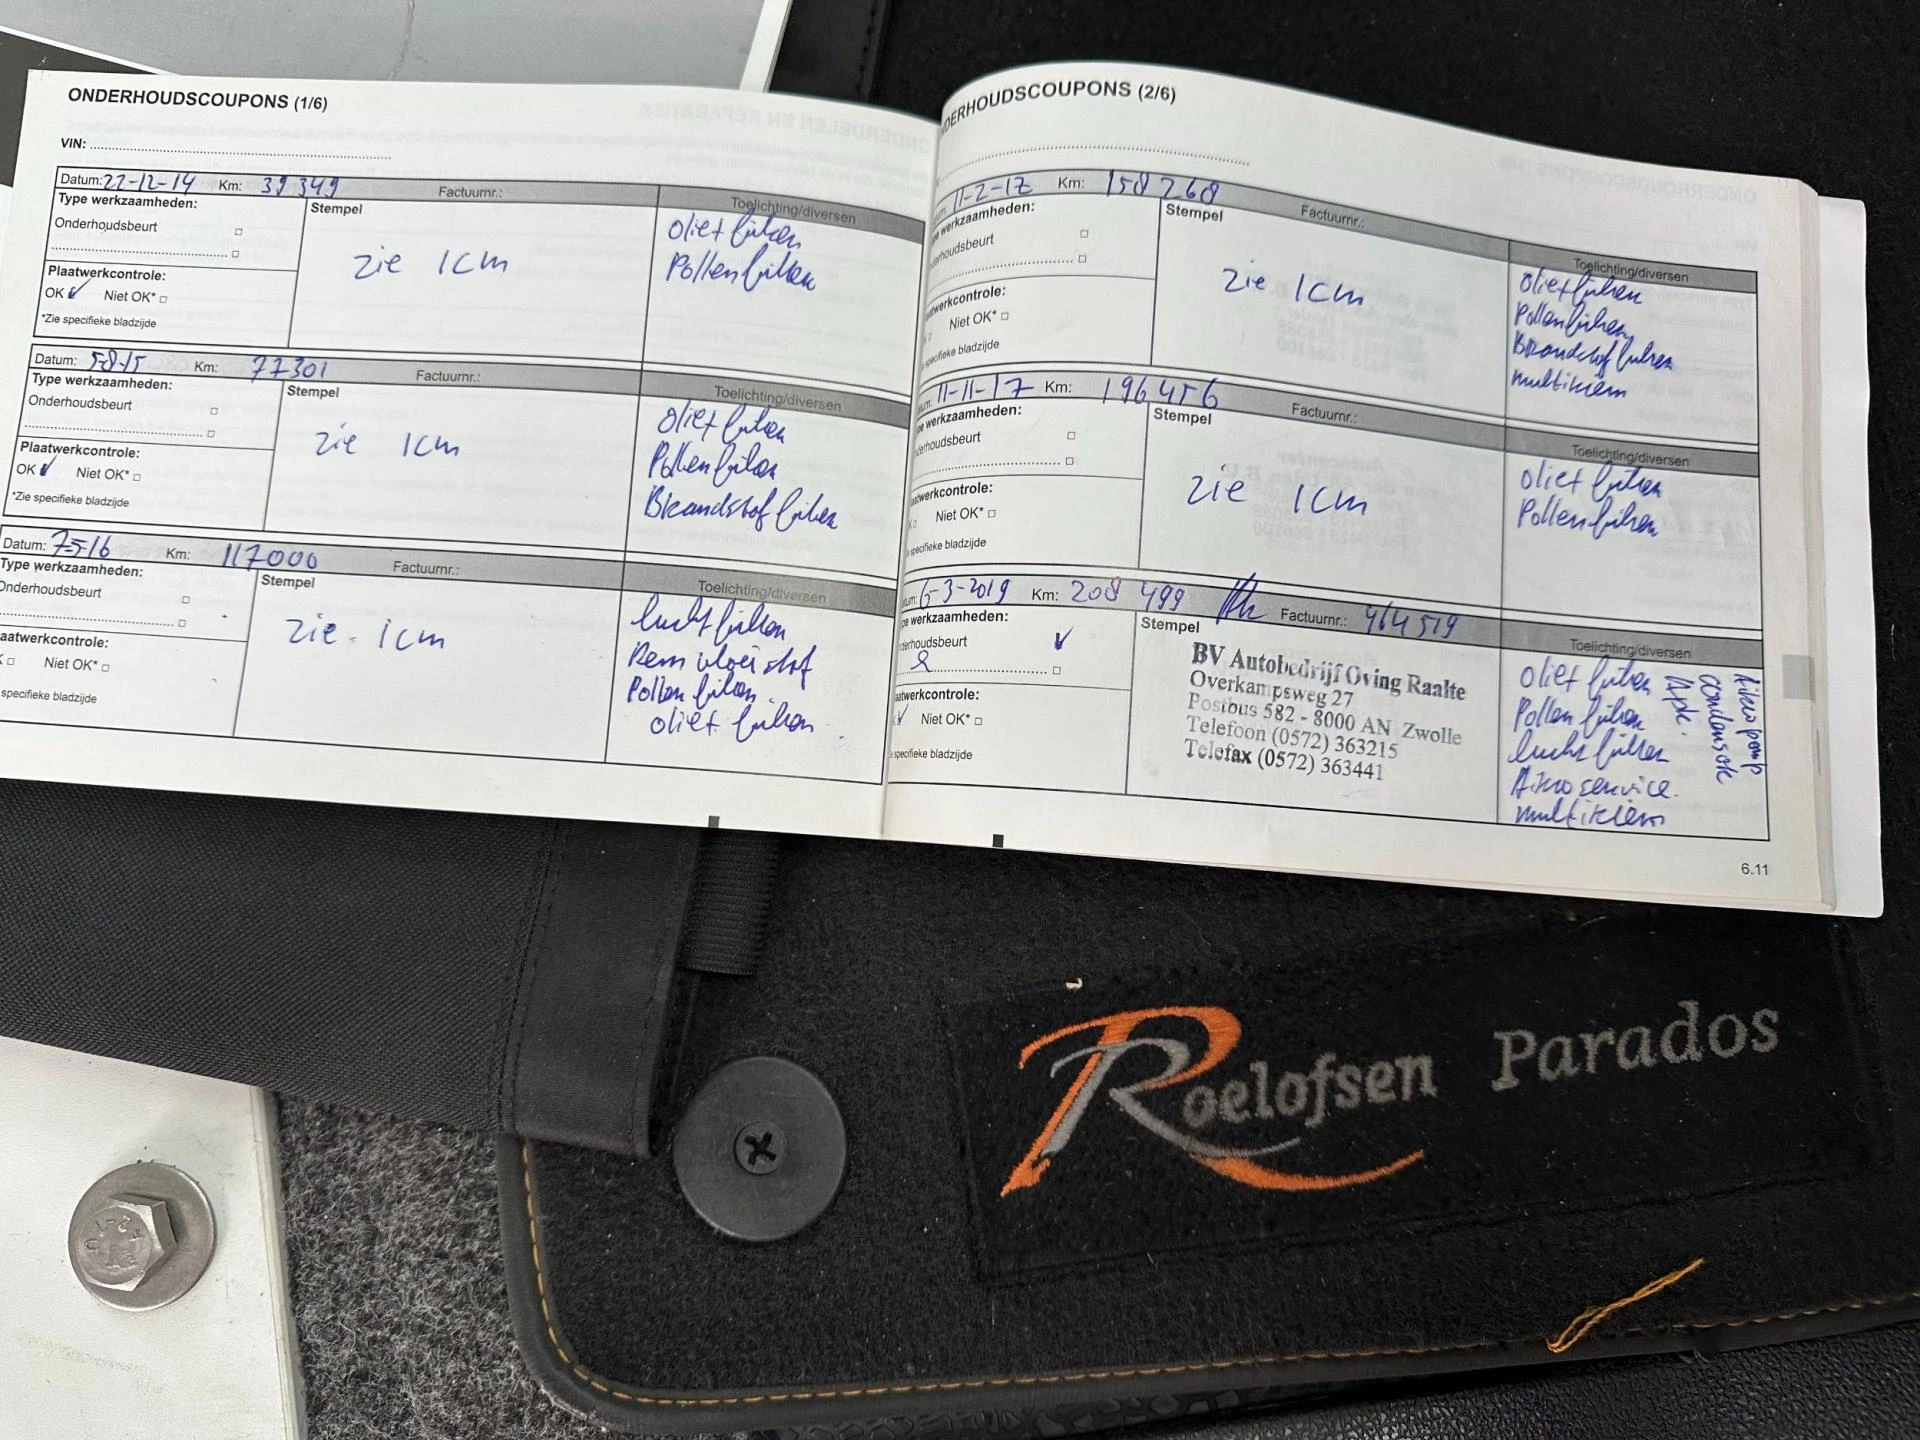 ONDERHOUDSCOUPONS (1/6)
VIN:
Datum: 22-12-14 Km: 39349 Factuurnr.:
Type werkzaamheden:
Onderhoudsbeurt
Stempel
zie 1cm
Toelichting/diversen
oliet filter
Pollenfilter
Plaatwerkcontrole:
OK Niet OK*
*Zie specifieke bladzijde
Datum: 5-8-15 Km: 77301 Factuurnr.:
Type werkzaamheden:
Onderhoudsbeurt
Stempel
zie 1cm
Toelichting/diversen
oliet filter
Pollenfilter
Brandstof filter
Plaatwerkcontrole:
OK Niet OK*
*Zie specifieke bladzijde
Datum: 7-5-16 Km: 117000 Factuurnr.:
Type werkzaamheden:
Onderhoudsbeurt
Stempel
zie 1cm
Toelichting/diversen
lucht filter
Rem vloei stof
Pollen filter
oliet filter
aatwerkcontrole:
Niet OK*
specifieke bladzijde
NDERHOUDSCOUPONS (2/6)
11-2-17 Km: 158268 Factuurnr.:
werkzaamheden:
nderhoudsbeurt
Stempel
zie 1cm
Toelichting/diversen
oliet filter
Pollenfilter
Brandstof filter
multiriem
atwerkcontrole:
Niet OK*
specifieke bladzijde
11-11-17 Km: 196456 Factuurnr.:
werkzaamheden:
nderhoudsbeurt
Stempel
zie 1cm
Toelichting/diversen
oliet filter
Pollenfilter
aatwerkcontrole:
Niet OK*
specifieke bladzijde
6-3-2019 Km: 208 499 Factuurnr.: 464519
pe werkzaamheden:
nderhoudsbeurt
Stempel
BV Autobedrijf Oving Raalte
Overkampsweg 27
Postbus 582 - 8000 AN Zwolle
Telefoon (0572) 363215
Telefax (0572) 363441
Toelichting/diversen
oliet filter
Pollen filter
lucht filter
Aircoservice.
multiriem
Apk.
condensok
Airco pomp
aatwerkcontrole:
Niet OK*
specifieke bladzijde
6.11
Roelofsen Parados